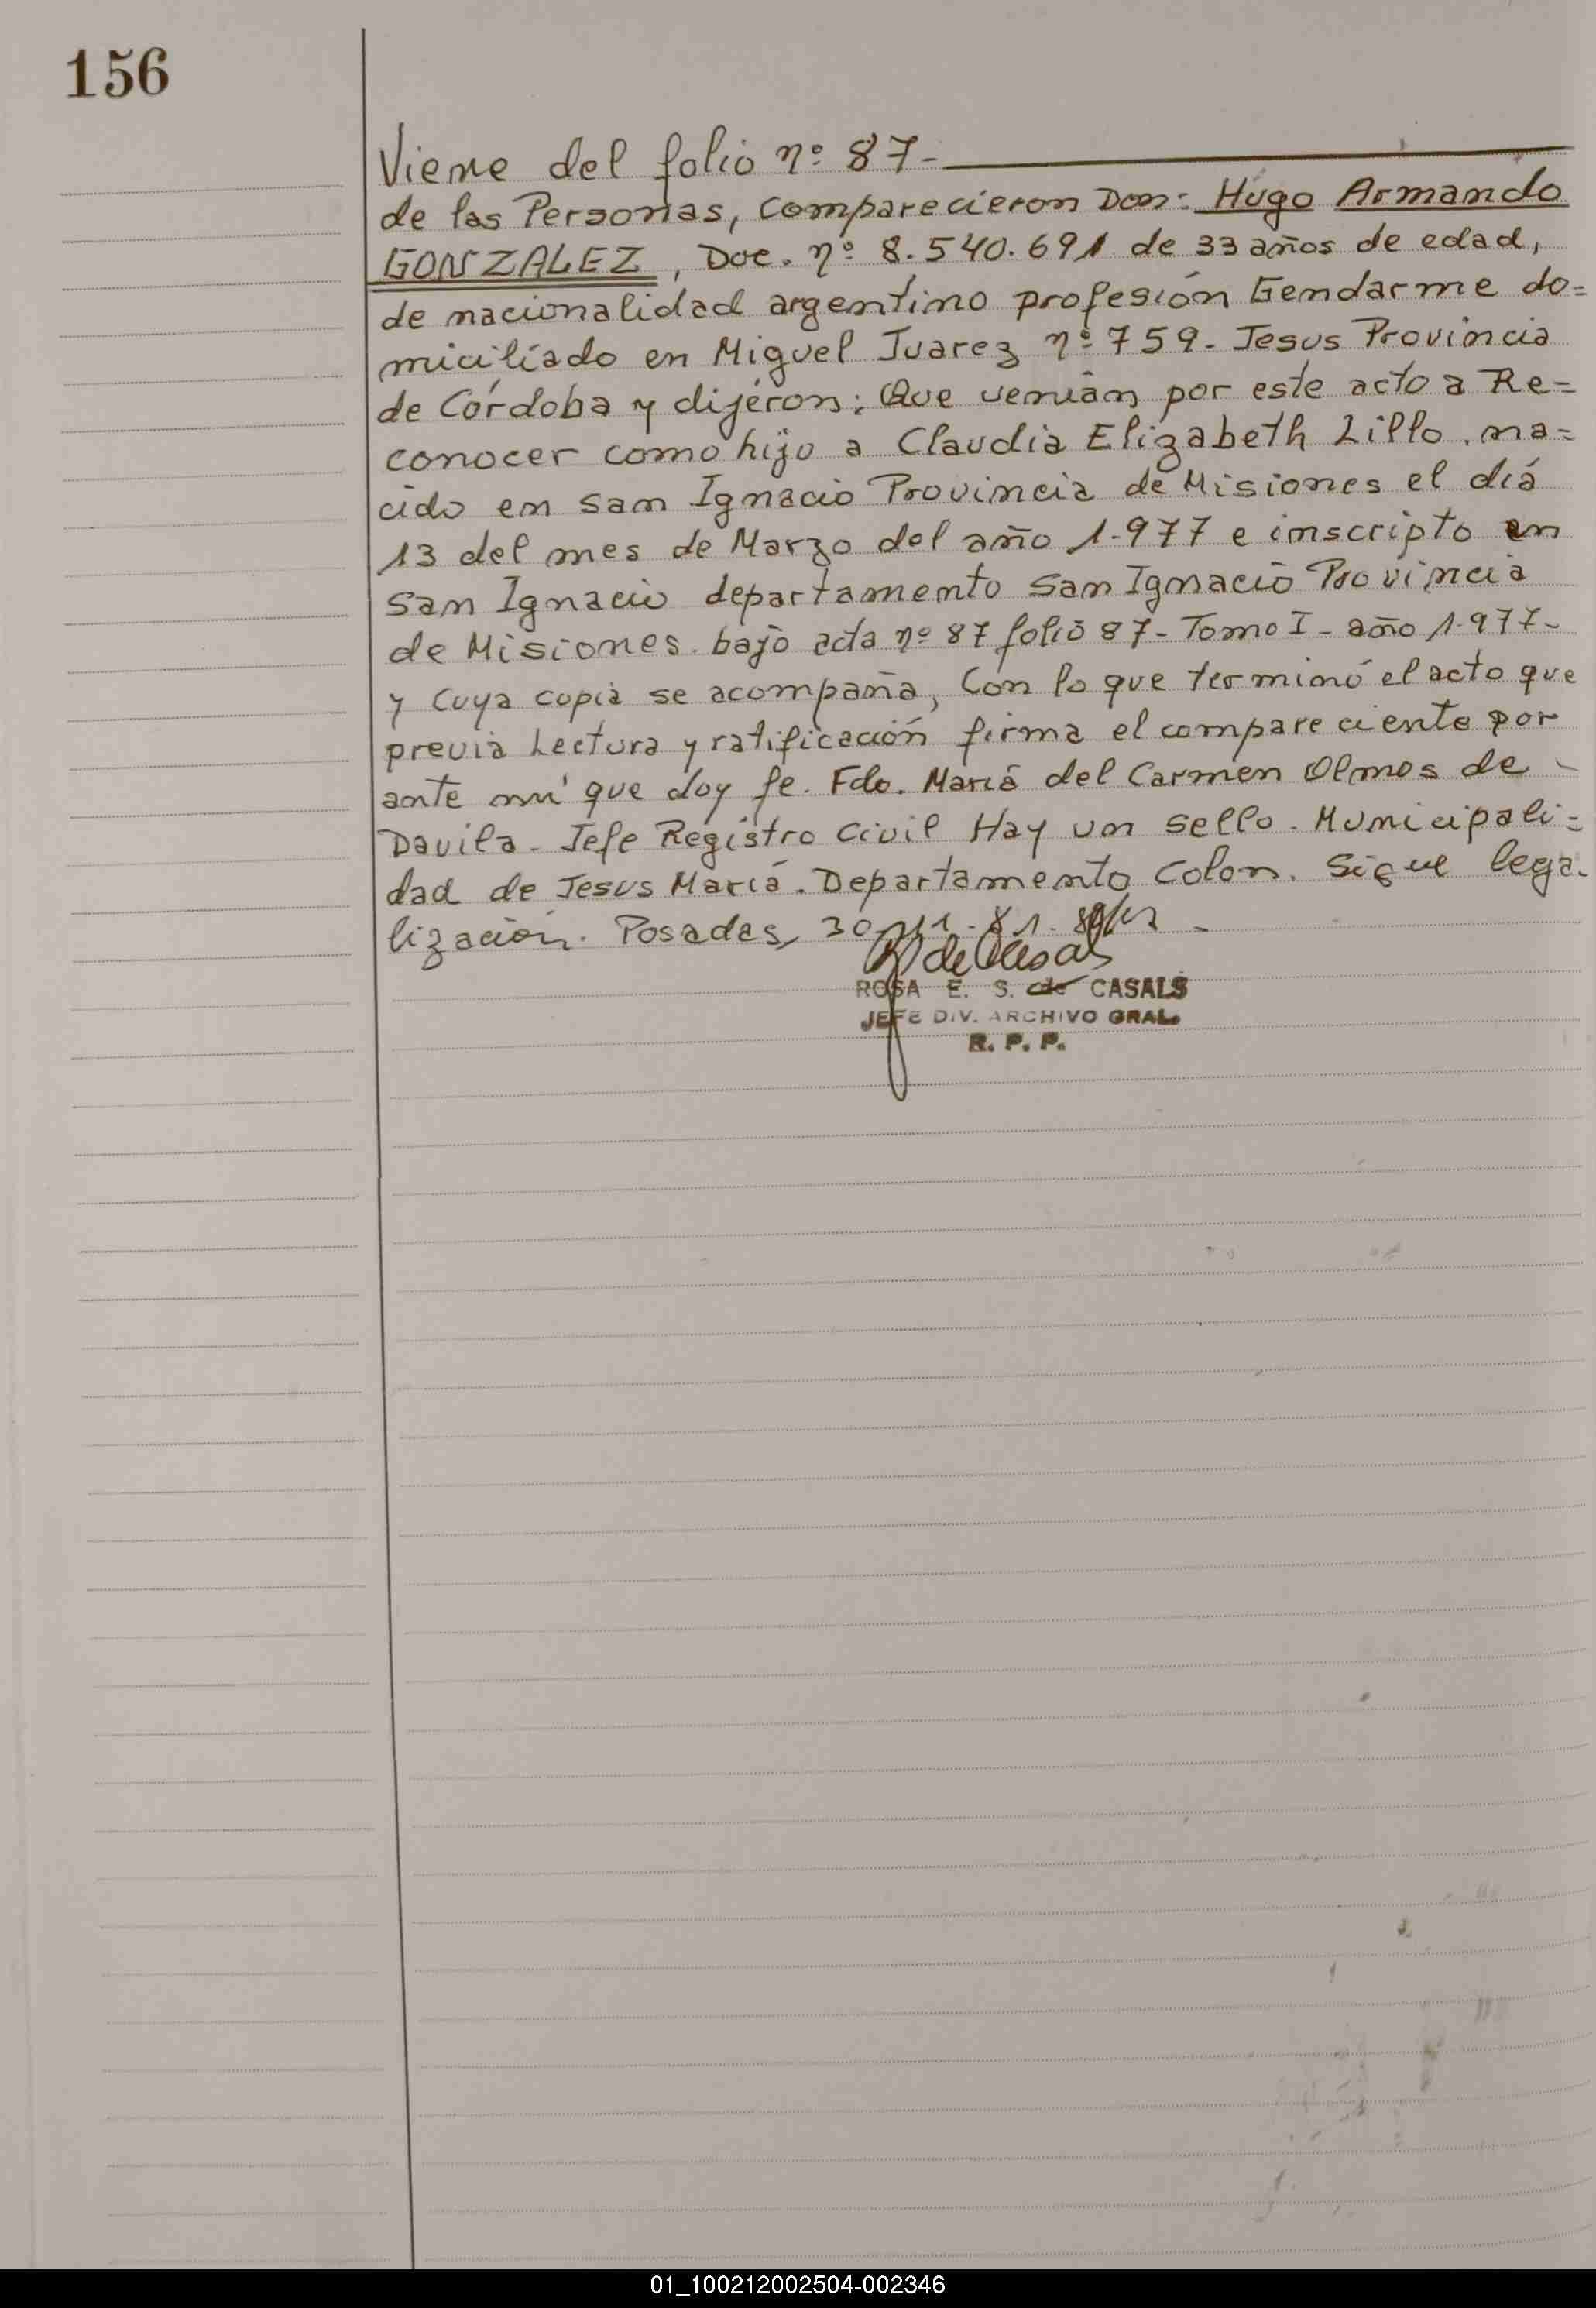 156
Viene del folio nº 87-
de las Personas, comparecieron Don: Hugo Armando
GONZALEZ, Doc. nº 8.540.691 de 33 años de edad,
de nacionalidad argentino profesión Gendarme do=
miciliado en Miguel Juarez nº 759- Jesus Provincia
de Córdoba y dijéron: Que venian por este acto a Re=
conocer como hijo a Claudia Elizabeth Lillo. na=
cido en San Ignacio Provincia de Misiones el día
13 del mes de Marzo del año 1.977 e inscripto en
San Ignacio departamento San Ignacio Provincia
de Misiones. bajo acta nº 87 folio 87- Tomo I - año 1.977-
y cuya copia se acompaña, Con lo que terminó el acto que
previa Lectura y ratificación firma el compareciente por
ante mi que doy fe. Fdo. María del Carmen Olmos de
Davila. Jefe Registro Civil Hay un sello. Municipali=
dad de Jesus María. Departamento Colon. Sigue lega-
lización. Posadas, 30
ROSA E. S. de CASALS
JEFE DIV. ARCHIVO GRAL.
R. P. P.
01_100212002504-002346